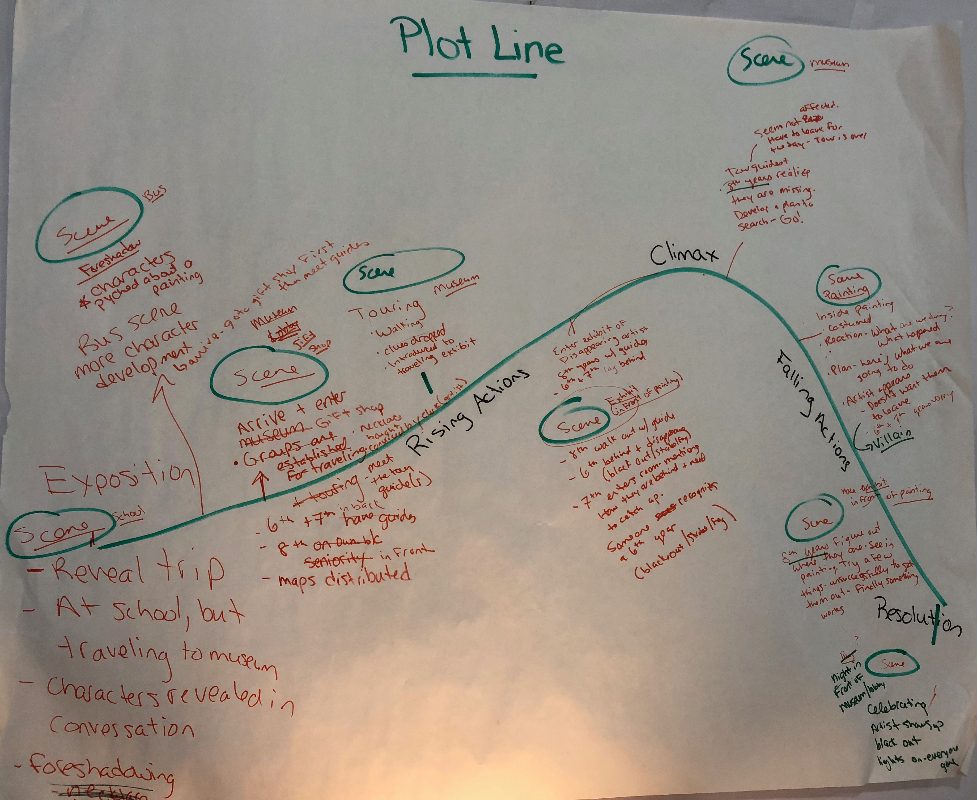 Plot Line
Scene
museum
affected.
Seem not
Have to leave for
the day - Tour is over
Tour guides +
8th years realize
they are missing.
Develop a plan to
search - Go!
Scene
Bus
Foreshadow
* characters
pyched about a
painting
Bus scene
more character
development
arrive - go to gift shop first
then meet guides
Museum
Gift
Shop
Scene
Arrive + enter
museum Gift shop
• Groups are
established
for traveling
+ touring meet
the tour
guide(s)
- 6th + 7th in back
- 8th
seniority in front
- maps distributed
Scene
museum
Touring
• Walking
• clues dropped
• introduced to
traveling exhibit
Rising Actions
Climax
Enter exhibit of
Disappearing artist
8th years w/ guides
6th + 7th lag behind
Scene
Exhibit
in front of painting
- 8th walk out w/ guide
- 6th behind + disappears
- 7th enters room
how they are behind + need
to catch up.
Someone recognizes
a 6th year
Falling Actions
Scene
Painting
Inside painting
costumed
• Reaction - What are we doing?
What happened
• Plan - here's what we are
going to do
• Artist appears
- Doesn't want them
to leave
Villain
in front of painting
Scene
8th years figure out
where they are - see in
painting. Try a few
things - unsuccessfully to get
them out - Finally something
works
Resolution
Scene
night in
front of
museum/lobby
Celebrating
Artist shows up
black out
lights on - everyone
gone
Exposition
Scene
School
- Reveal trip
- At school, but
traveling to museum
- Characters revealed in
conversation
- foreshadowing